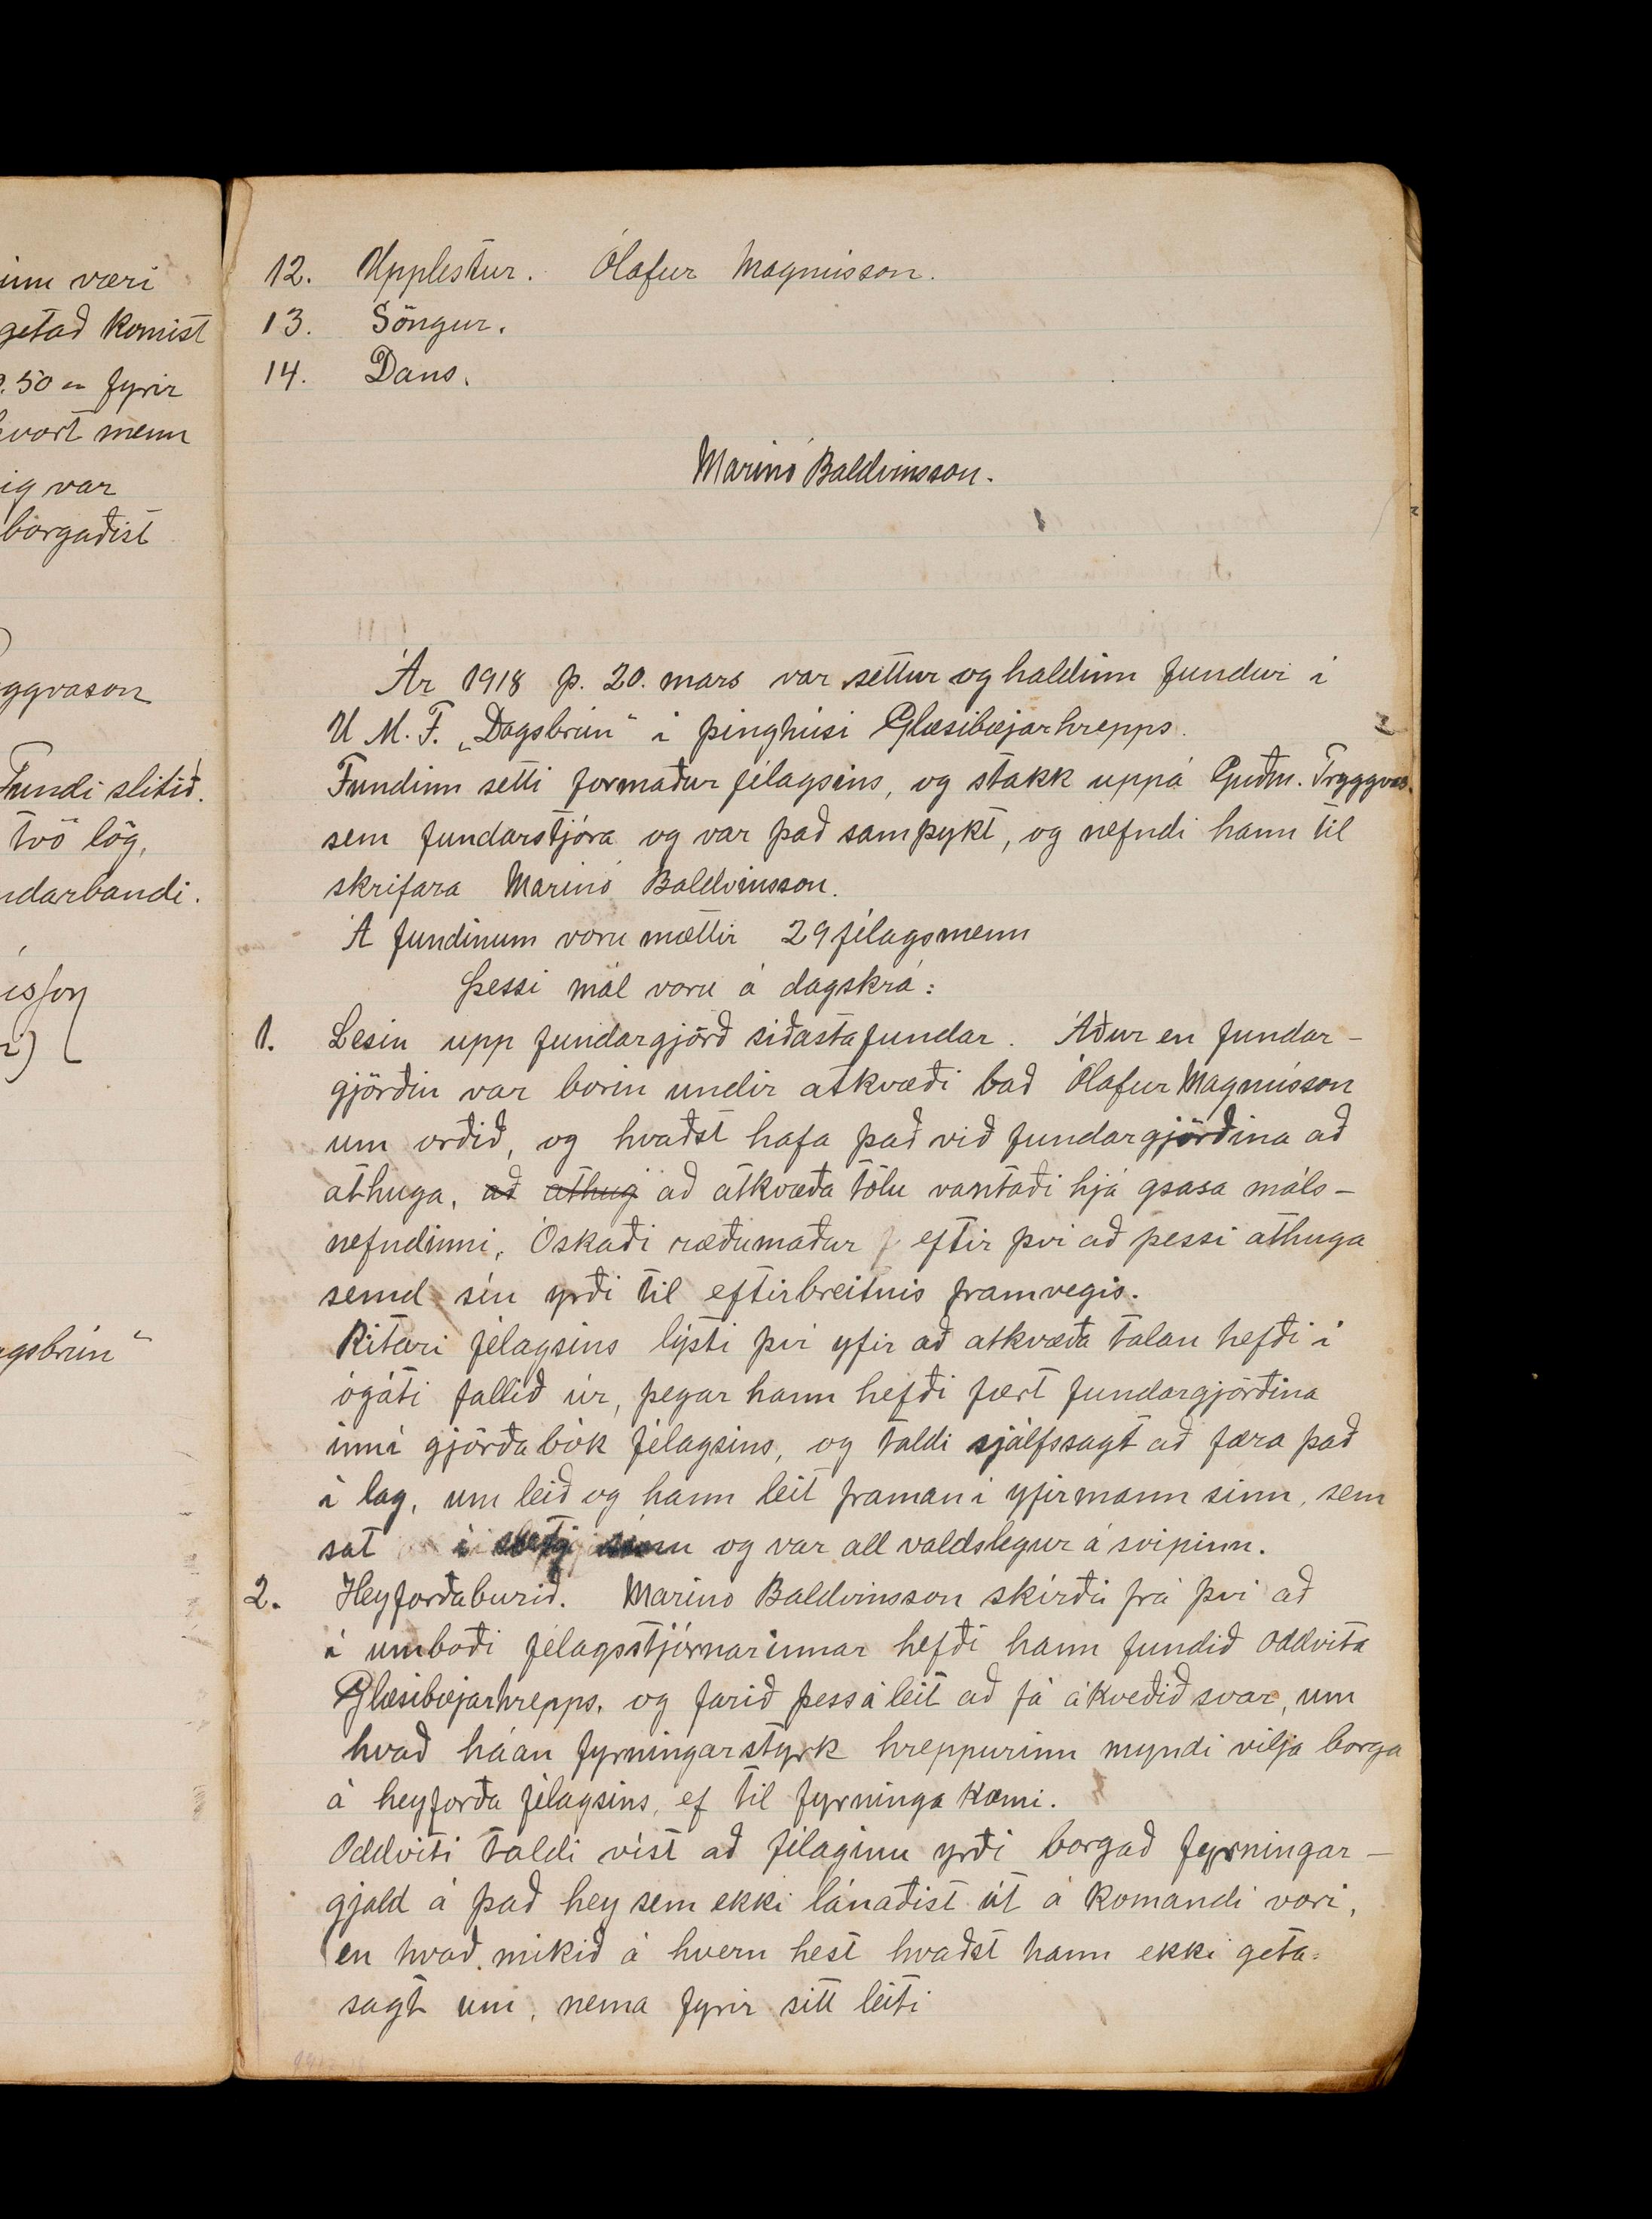 inn væri
getað komist
.50 au fyrir
hvort menn
ig var
borgaðist
ggvason
Fundi slitið.
tvö lög,
ndarbandi.
gsbrún"
12. Upplestur. Ólafur Magnússon.
13. Söngur.
14. Dans.
Marinó Baldvinsson.
Ár 1918 þ. 20. mars var settur og haldinn fundur í
U. M. F. „Dagsbrún" í þinghúsi Glæsibæjarhrepps.
Fundinn setti formaður félagsins, og stakk uppá Guðm. Tryggvas.
sem fundarstjóra og var það samþykt, og nefndi hann til
skrifara Marinó Baldvinsson.
Á fundinum voru mættir 29 félagsmenn
Þessi mál voru á dagskrá:
1. Lesin upp fundargjörð síðasta fundar. Áður en fundar-
gjörðin var borin undir atkvæði bað Ólafur Magnússon
um orðið, og hvaðst hafa það við fundargjörðina að
athuga, að athug að atkvæða tölu vantaði hjá gsasa máls-
nefndinni, Óskaði ræðumaður eftir því að þessi athuga
semd sín yrði til eftirbreitnis framvegis.
Ritari félagsins lýsti því yfir að atkvæða talan hefði í
ógáti fallið úr, þegar hann hefði fært fundargjörðina
inní gjörðabók félagsins, og taldi sjálfssagt að færa það
í lag, um leið og hann leit framan í yfirmann sinn, sem
sat í og var all valdslegur á svipinn.
2. Heyforðaburið. Marinó Baldvinsson skírði frá því að
í umboði félagsstjórnarinnar hefði hann fundið oddvita
Glæsibæjarhrepps, og farið þess á leit að fá ákveðið svar, um
hvað háan fyrningarstyrk hreppurinn myndi vilja borga
á heyforða félagsins, ef til fyrninga kæmi.
Oddviti taldi víst að félaginu yrði borgað fyrningar-
gjald á það hey sem ekki lánaðist út á komandi vori,
en hvað mikið á hvern hest hvaðst hann ekki geta
sagt um, nema fyrir sitt leiti